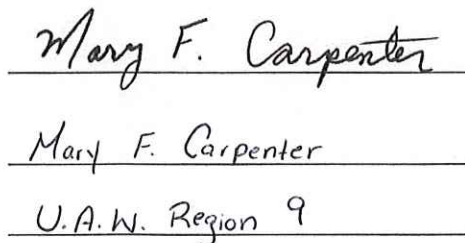 Mary F. Carpenter
Mary F. Carpenter
U.A.W. Region 9